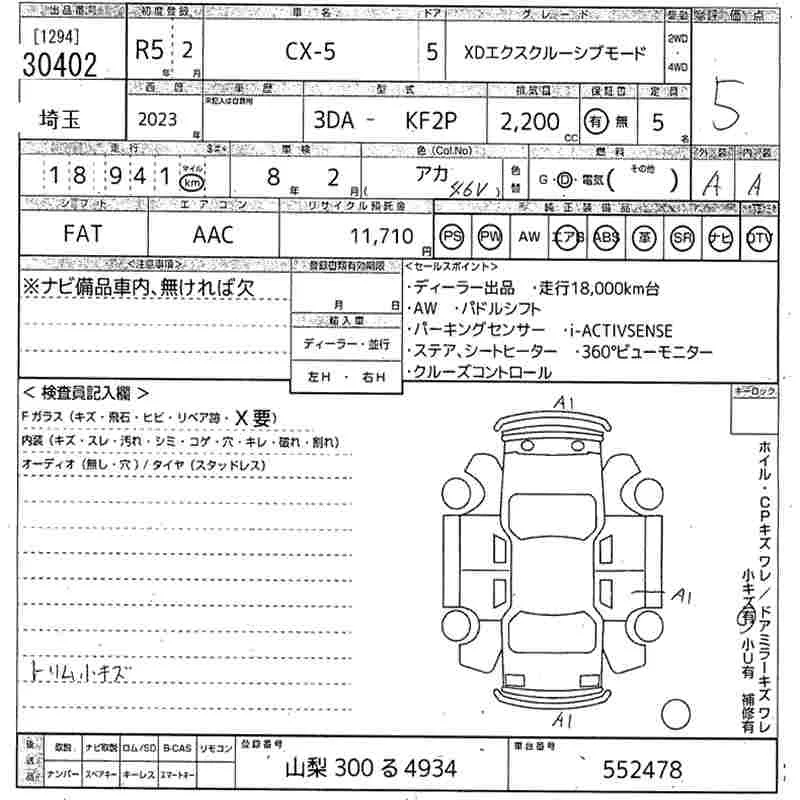 出品番号 初度登録 車名 ドア グレード 駆動 評価点
[1294]
30402 R5 2 CX-5 5 XDエクスクルーシブモード 2WD・4WD 5
年 月
西暦 車歴 型式 排気量 保証書 定員
埼玉 2023年 ※記入は自家用 3DA - KF2P 2,200cc 有 無 5名
走行 車検 色(Col.No) 燃料 外装 内装
18941 マイル km 8年 2月 アカ (46V) 色替 G・D・電気( その他 ) A A
シフト エアコン リサイクル預託金 純正装備品
FAT AAC 11,710円 PS PW AW エアB ABS 革 SR ナビ DTV
<注意事項>
※ナビ備品車内、無ければ欠
登録書類有効期限
月 日
輸入車
ディーラー・並行
左H・右H
<セールスポイント>
・ディーラー出品 ・走行18,000km台
・AW ・パドルシフト
・パーキングセンサー ・i-ACTIVSENSE
・ステア、シートヒーター ・360°ビューモニター
・クルーズコントロール
キーロック
<検査員記入欄>
Fガラス(キズ・飛石・ヒビ・リペア跡・X要)
内装(キズ・スレ・汚れ・シミ・コゲ・穴・キレ・破れ・割れ)
オーディオ(無し・穴)/タイヤ(スタッドレス)
トリム小キズ
A1
A1
A1
ホイル・CPキズ ワレ/ドアミラーキズ ワレ
小キズ有 小U有 補修有
後送品 取説 ナビ取説 ロム/SD B-CAS リモコン 登録番号 車台番号
ナンバー スペアキー キーレス スマートキー 山梨 300 る 4934 552478